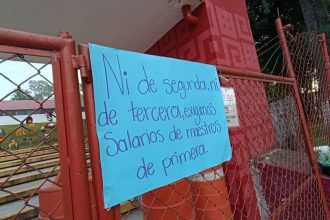 Ni de segunda, ni
de tercera, exigimos
Salarios de maestros
de primera.